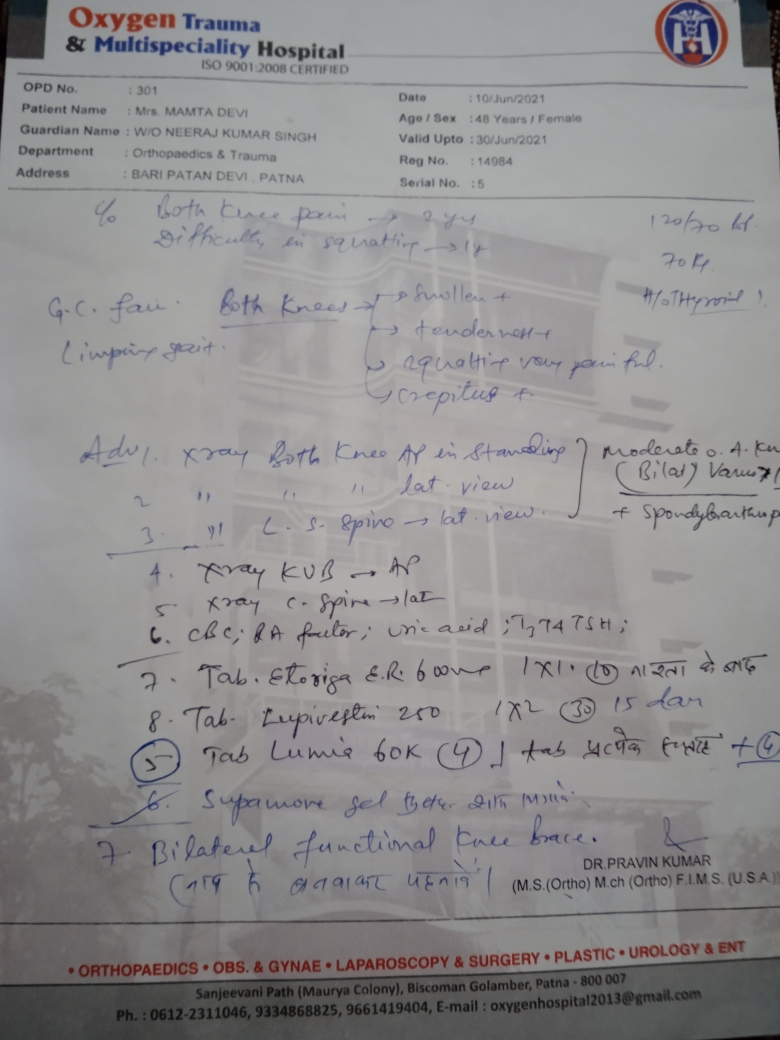 Oxygen Trauma
& Multispeciality Hospital
ISO 9001:2008 CERTIFIED
OPD No. : 301
Date : 10/Jun/2021
Patient Name : Mrs. MAMTA DEVI
Age / Sex : 48 Years / Female
Guardian Name : W/O NEERAJ KUMAR SINGH
Valid Upto : 30/Jun/2021
Department : Orthopaedics & Trauma
Reg No. : 14984
Address : BARI PATAN DEVI , PATNA
Serial No. : 5
c/o Both Knee pain → 2 yrs
120/70
Difficulty in squatting → 1y
70 K
H/o Thyroid
G.C. fair. Both Knees → swollen +
Limping gait. → tenderness +
→ squatting very painful.
→ crepitus +
Adv 1. Xray Both Knee AP in Standing
moderate O.A. Kn
2 " " " lat. view
(Bilat) Varus
3. " L. S. Spine → lat. view.
+
4. Xray KUB → AP
5 Xray C. Spine → lat
6. CBC; RA factor; uric acid; T3 T4 TSH;
7. Tab. E.R. 600mg 1X1. (10) नाश्ता के बाद
8. Tab. 250 1X2 (30) 15
5 Tab Lumia 60K (4) 1 tab प्रत्येक + (4)
6. gel
7 Bilateral functional Knee brace.
DR.PRAVIN KUMAR
(M.S.(Ortho) M.ch (Ortho) F.I.M.S. (U.S.A.))
• ORTHOPAEDICS • OBS. & GYNAE • LAPAROSCOPY & SURGERY • PLASTIC • UROLOGY & ENT
Sanjeevani Path (Maurya Colony), Biscoman Golamber, Patna - 800 007
Ph. : 0612-2311046, 9334868825, 9661419404, E-mail : oxygenhospital2013@gmail.com